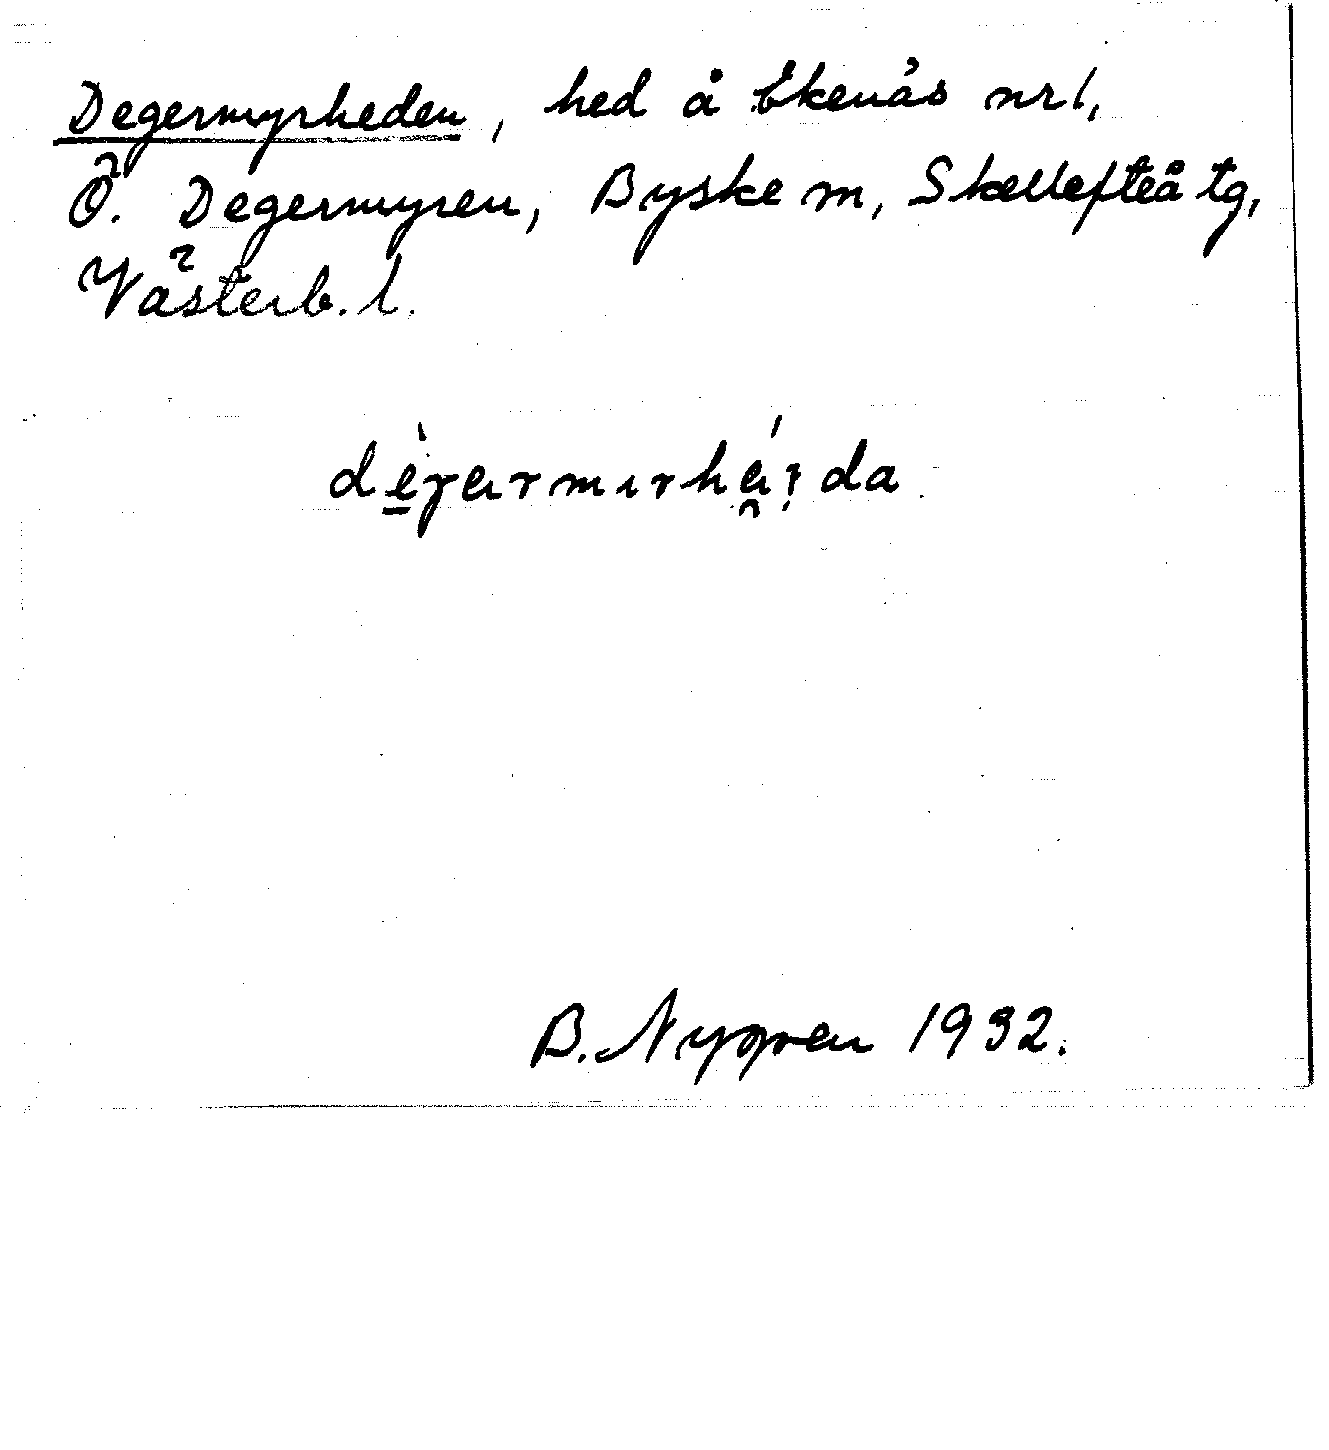 Degermyrheden, hed å Ekenäs nr 1,
Ö. Degermyren, Byske m, Skellefteå tg,
Västerb. l.
B. Nygren 1932.